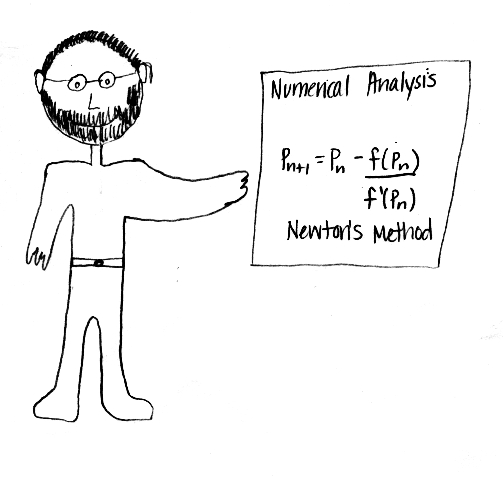 Numerical Analysis
Pn+1 = Pn - f(Pn)
f'(Pn)
Newton's Method